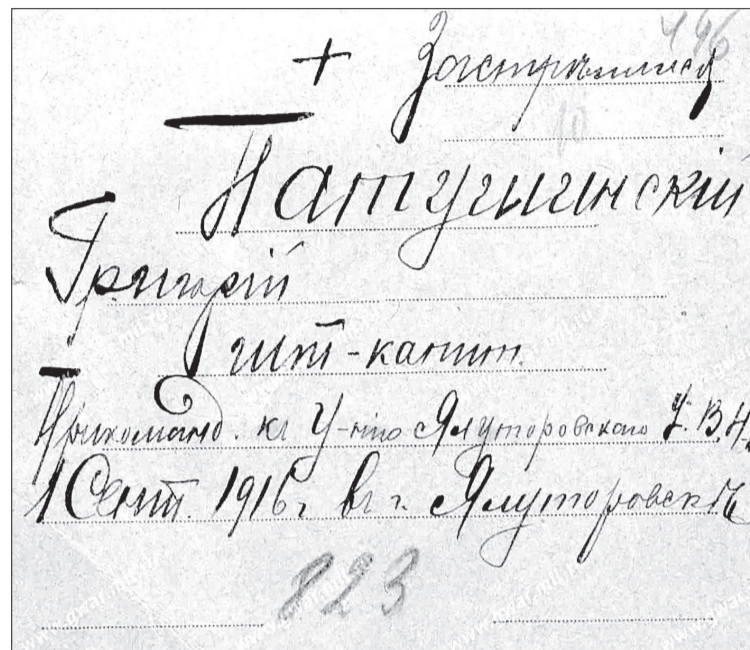 496
+ Застрѣлился
10
Патушинскій
Григорій
шт-капит.
Прикоманд. къ У-нію Ялуторовскаго У. В. Н.
1 Сент. 1916 г. въ г. Ялуторовскѣ
823